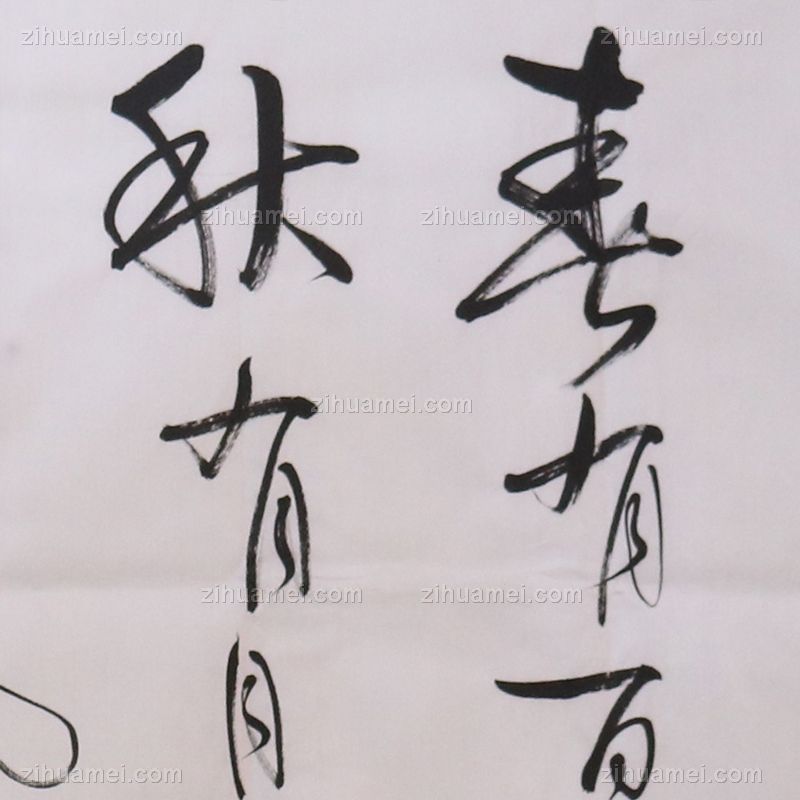 春有百
秋有月
zihuamei.com
zihuamei.com
zihuamei.com
zihuamei.com
zihuamei.com
zihuamei.com
zihuamei.com
zihuamei.com
zihuamei.com